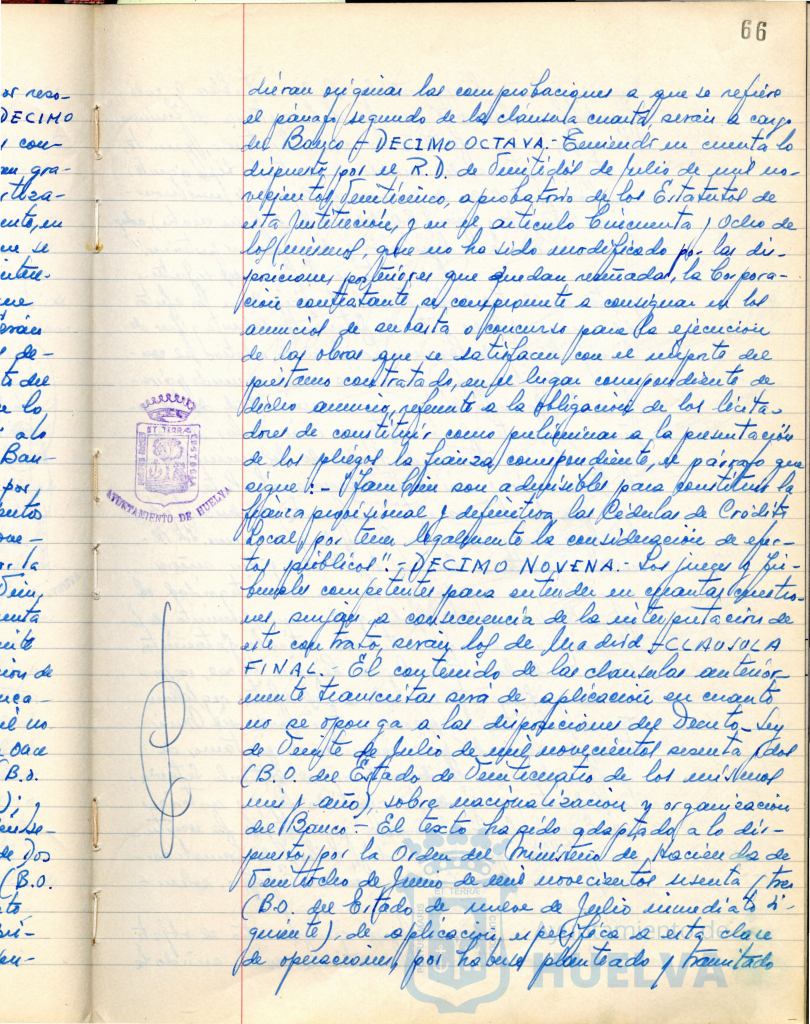 66
or reso-
DECIMO
con-
gra-
tiza-
ento, en
se
inten-
me
erán
de-
to del
lo
a lo
Ban-
por
entos
ne-
or la
Vein
enta
ción de
nca-
no
Dace
(B.O.
de Dos
(B.O.
dieran originar las comprobaciones a que se refiere
el párrafo segundo de la cláusula cuarta, serán a cargo
del Banco.- DECIMO OCTAVA.- Teniendo en cuenta lo
dispuesto por el R.D. de Veintidós de Julio de mil no-
vecientos Veinticinco, aprobatorio de los Estatutos de
esta Institución, y en el artículo Cincuenta y Ocho de
los mismos, que no ha sido modificado por las dis-
posiciones posteriores que quedan reseñadas, la Corpora-
ción contratante, se compromete a consignar en los
anuncios de subasta o concurso para la ejecución
de las obras que se satisfacen con el importe del
préstamo contratado, en el lugar correspondiente de
dicho anuncio, referente a la obligación de los licita-
dores de constituir como preliminar a la presentación
de los pliegos la fianza correspondiente, el párrafo que
sigue:- "También son admisibles para constituir la
fianza provisional y definitiva, las Cédulas de Crédito
Local por tener legalmente la consideración de efec-
tos públicos".- DECIMO NOVENA.- Los jueces y tri-
bunales competentes para entender en cuantas cuestio-
nes, surjan a consecuencia de la interpretación de
este contrato, serán los de Madrid.- CLAUSULA
FINAL.- El contenido de las clausulas anterior-
mente transcritas será de aplicación en cuanto
no se oponga a las disposiciones del Decreto-Ley
de Veinte de Julio de mil novecientos sesenta y dos
(B.O. del Estado de Veinticuatro de los mismos
mes y año), sobre nacionalización y organización
del Banco.- El texto ha sido adaptado a lo dis-
puesto, por la Orden del Ministerio de Hacienda de
Veintiocho de Junio de mil novecientos sesenta y tres
(B.O. del Estado de nueve de Julio inmediato si-
guiente), de aplicación específica a esta clase
de operaciones, por haberse planteado y tramitado
AYUNTAMIENTO DE HUELVA
Ayuntamiento de
HUELVA